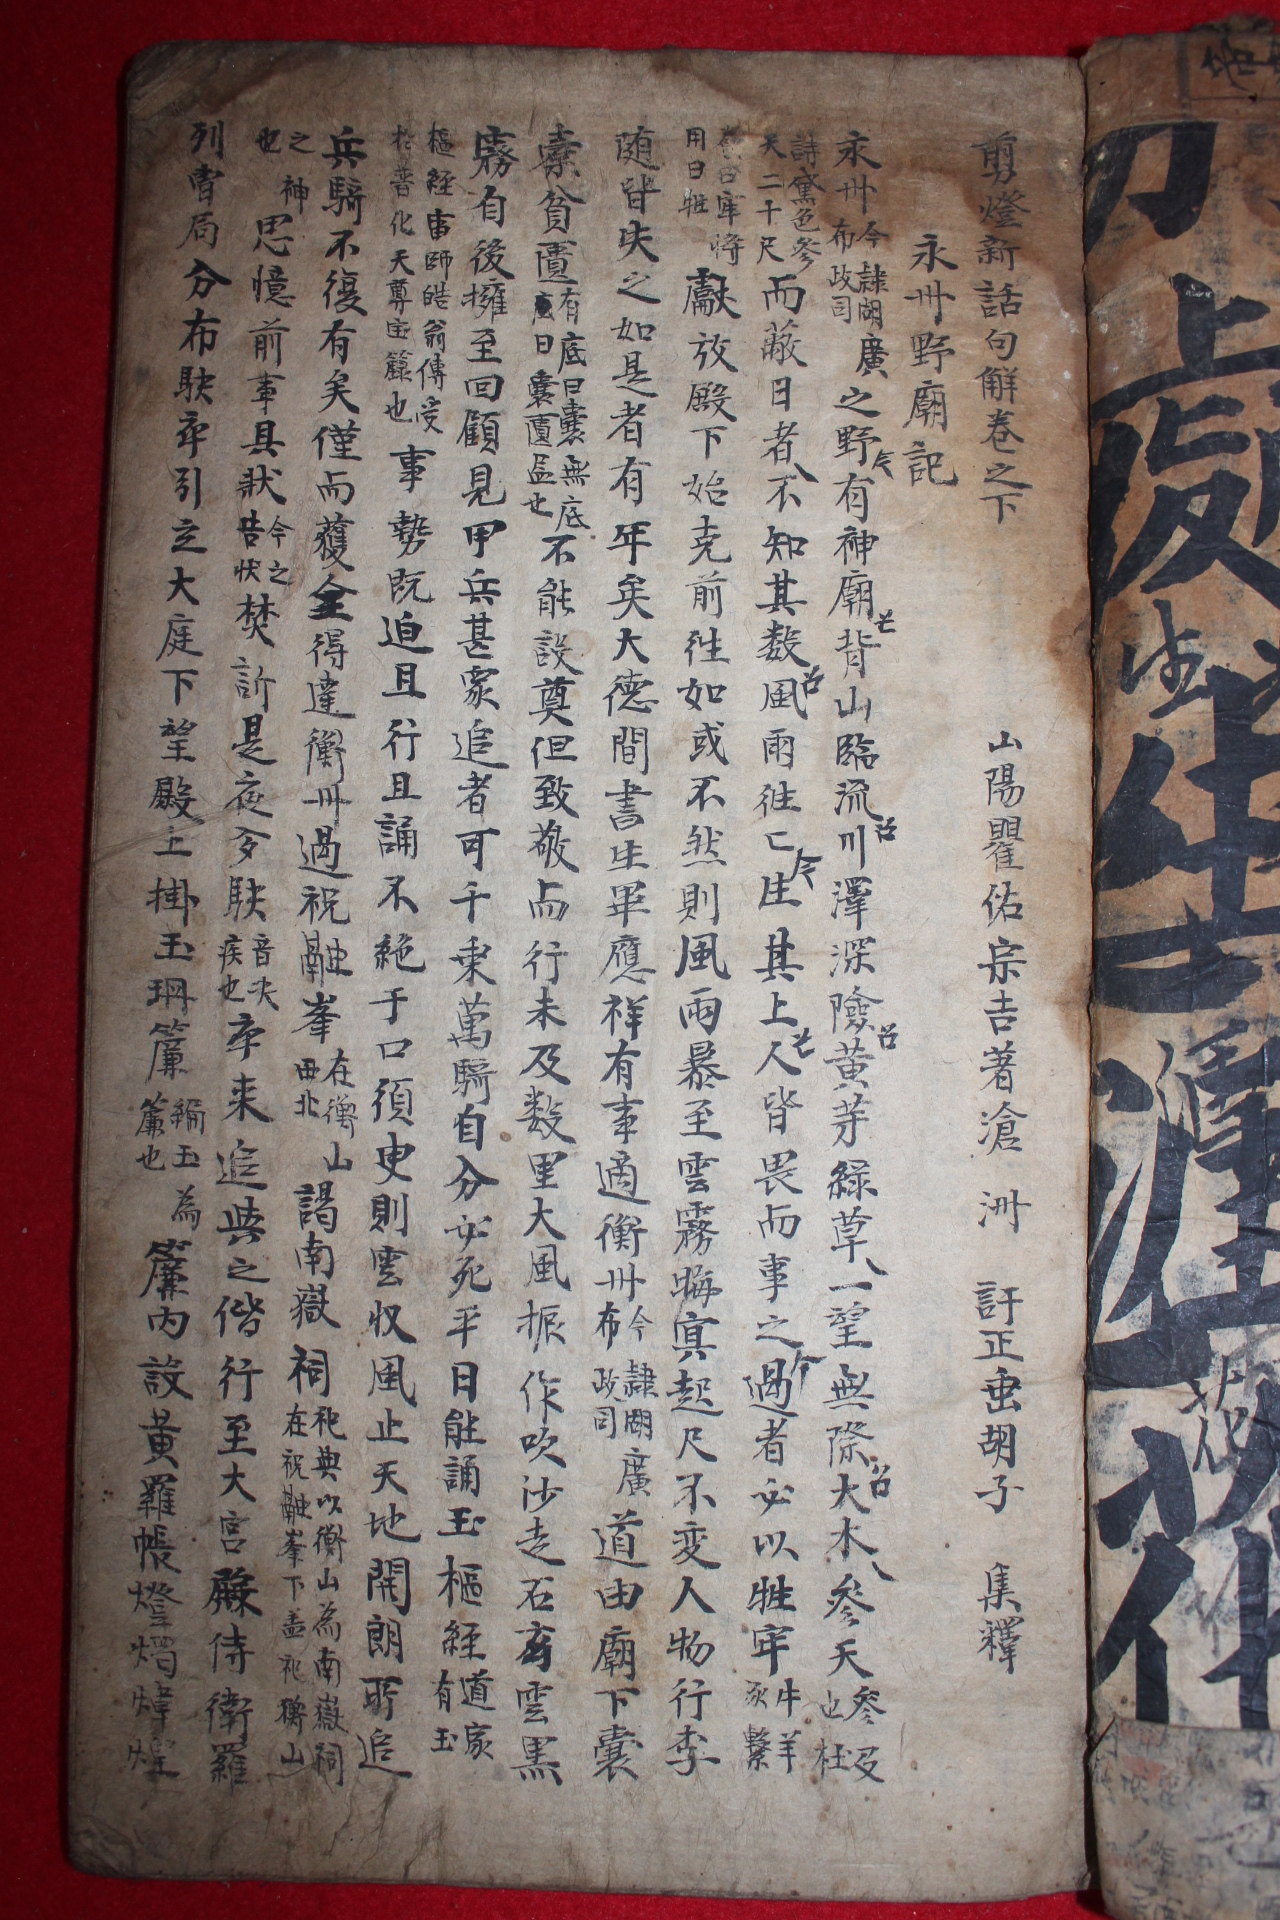 剪燈新話句解卷之下
山陽瞿佑宗吉著滄洲訂正垂胡子集釋
永州野廟記
永州今隷湖廣布政司之野有神廟背山臨流川澤深險黃芽緑草一望無際大木參天參及也杜
詩黛色參天二十尺而蔽日者不知其数風雨徃亡生其上人皆畏而事之過者必以牲牢牛羊豕繫
養曰牢將用曰牲獻放殿下始克前徃如或不然則風雨暴至雲霧晦㝠起尺不变人物行李
随皆失之如是者有年矣大德間書生畢應祥有事適衡州今隷湖廣布政司道由廟下囊
槖貧匱有底曰囊無底曰槖匱盁也不能設奠但致敬而行未及数里大風振作吹沙走石玄雲黒
霧自後擁至回顧見甲兵甚衆追者可千乘萬騎自分必死平日能誦玉樞經道家有玉
樞経雷師皓翁傳受於普化天尊宝籙也事勢既迫且行且誦不絶于口須臾則雲收風止天地開朗所追
兵騎不復有矣僅而獲全得達衡州過祝融峯在衡山西北謁南嶽祠祀典以衡山為南嶽祠在祝融峯下盖祀衡山
之神也思憶前事具狀今之告状焚訴是夜夛駃音决疾也卒来追與之偕行至大宮殿侍衛羅
列曺局分布駃卒引立大庭下望殿上掛玉珊簾編玉為簾也簾内設黄羅帳燈燭煒煌